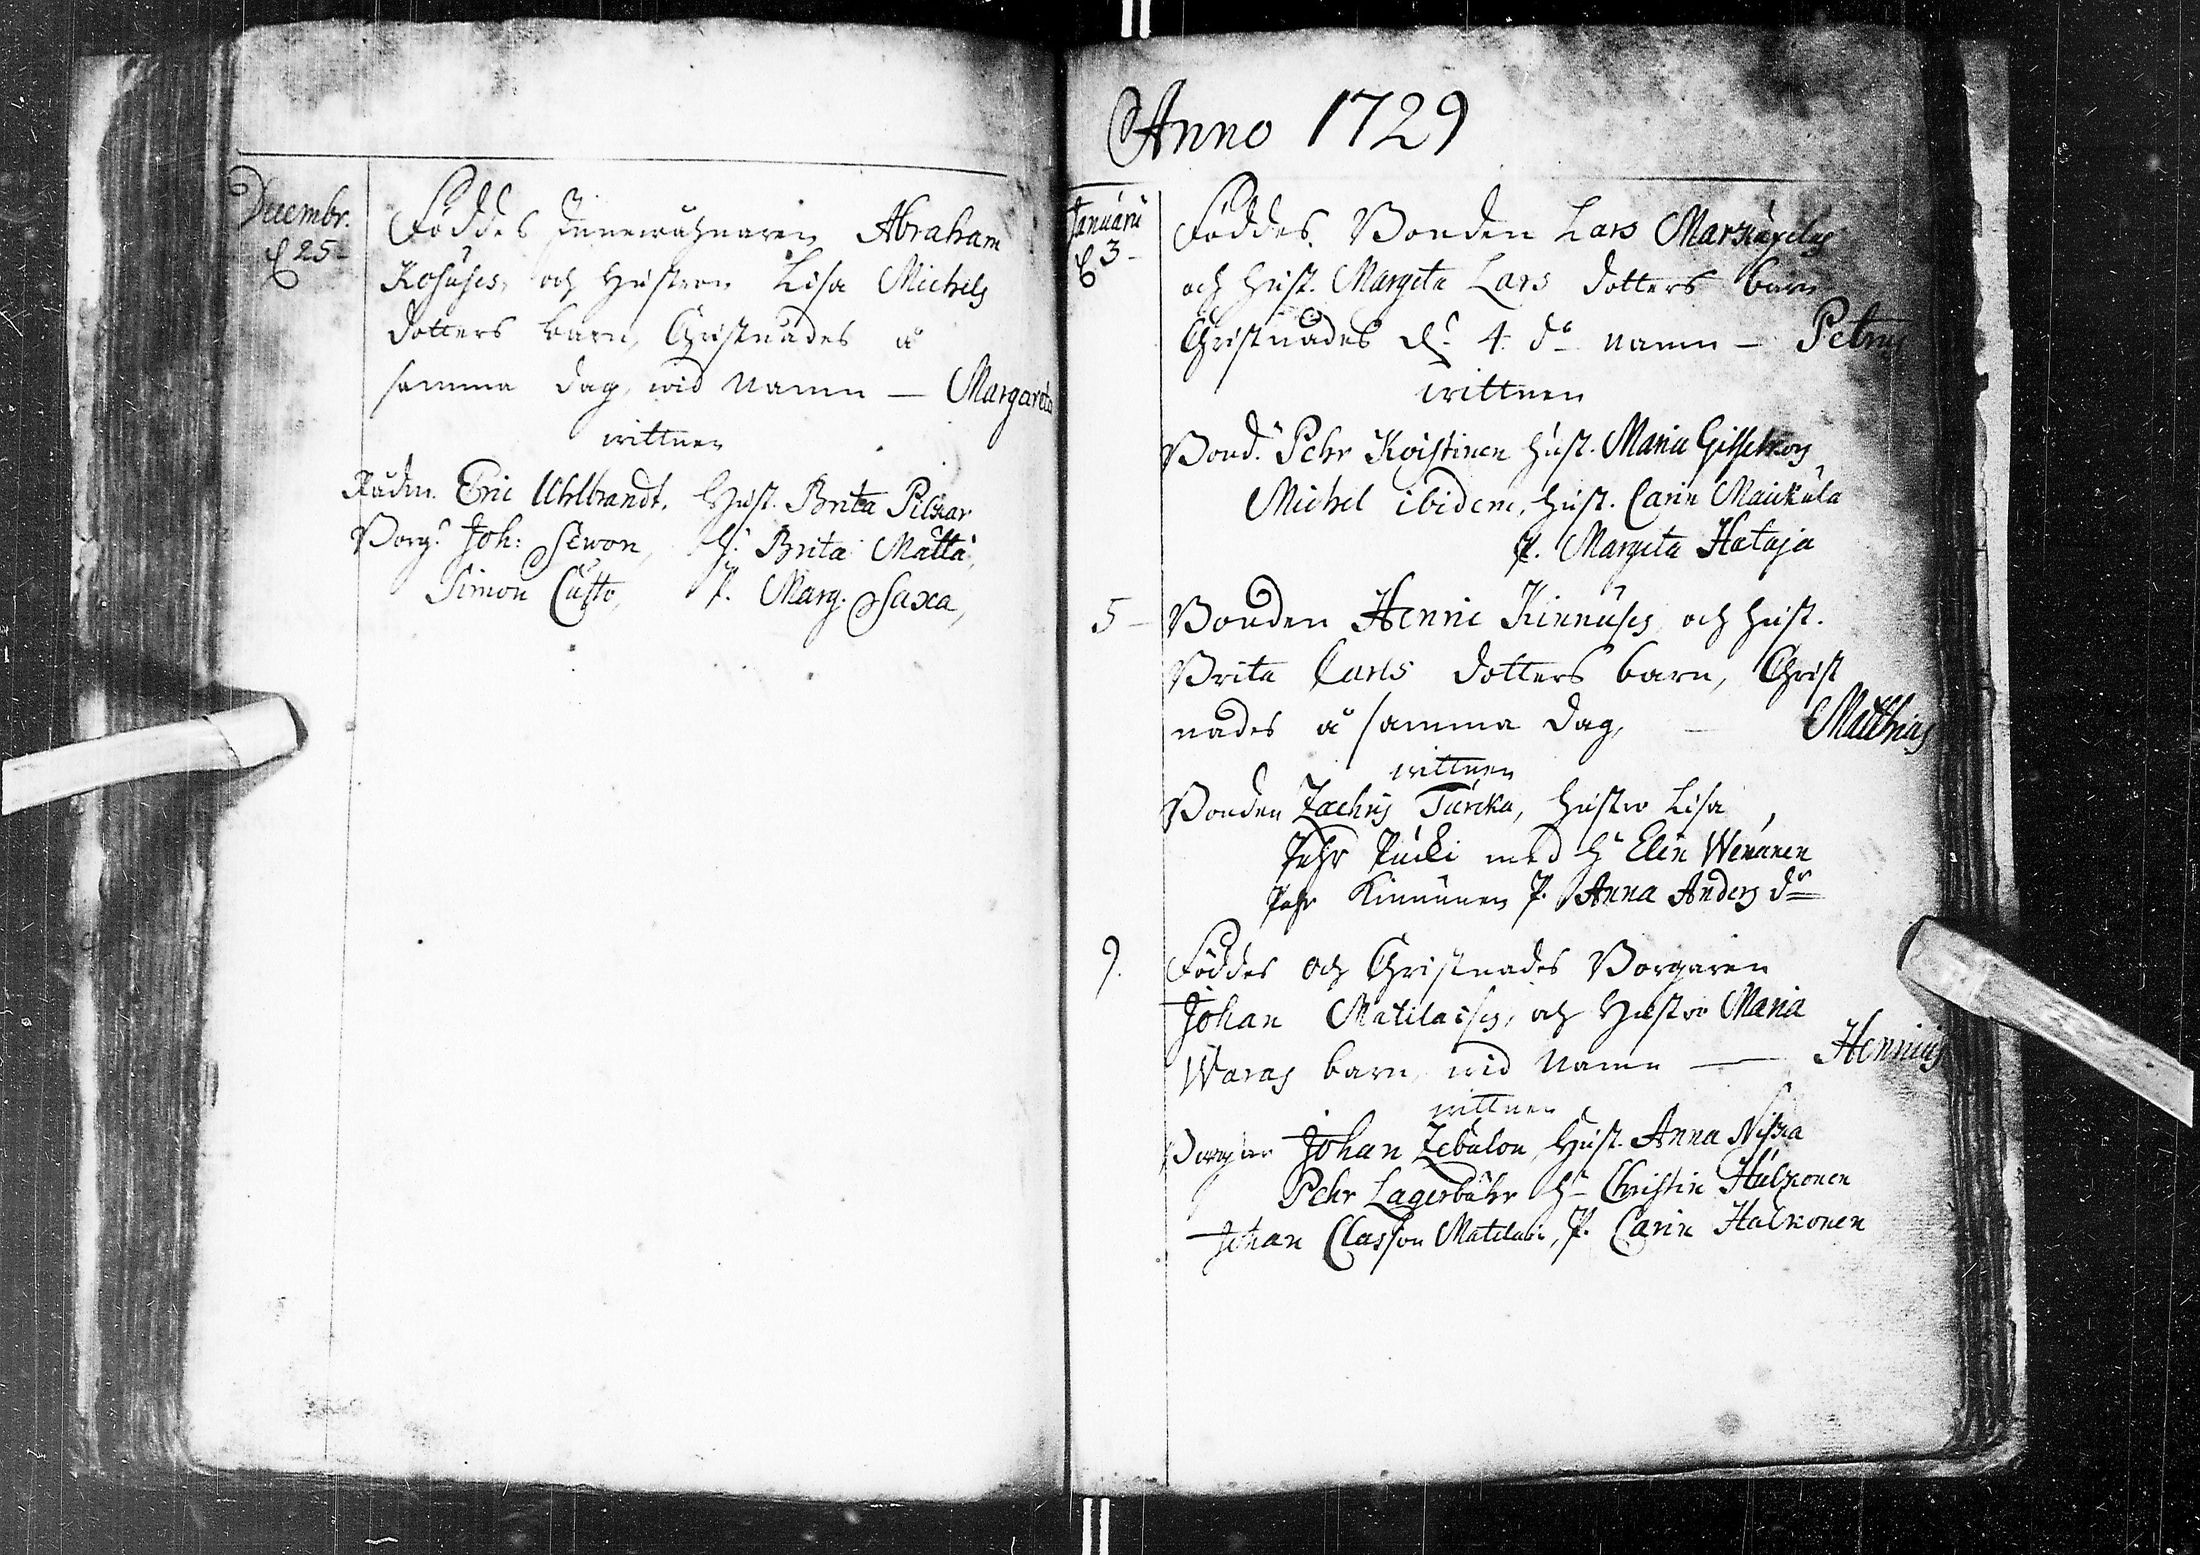 Decembr.
d 25
Föddes Innewåhnaren Abraham
Kosuses och Hustron Lisa Michels
dotters barn, Christnades å
samma dag, wid namn — Margareta
wittnen
Rådm. Eric Uhlbrandt, Hust. Brita Pilkar
Borg. Joh: Sewon, H. Brita Matta,
Simon Custo, P. Marg. Saxa,
Anno 1729
Januarii
d 3
Föddes Bonden Lars
och Hust. Margeta Lars dotters barn
Christnades d. 4 do namn — Petrus
wittnen
Bond. Pehr Koistinen Hust. Maria
Michel ibidem, Hust. Carin Maickula
P. Margeta Hataja
5 — Bonden Henric Kinnuses och Hust.
Brita Carls dotters barn, Christ
nades å samma dag, — Matthias
wittnen
Bonden Zachris Turcka, Hustro Lisa
Pehr Pucki med H. Elin Wenänen
Pehr Kinnunen P. Anna Anders dr
9. Föddes och Christnades Borgaren
Johan Matilaises, och Hustro Maria
Waras barn, wid namn — Henricus
wittnen
Borgare Johan Zebulon, Hust. Anna Niska
Pehr Lagerbohr H. Christin Hulkonen
Johan Classon Matilain, P. Carin Halkonen